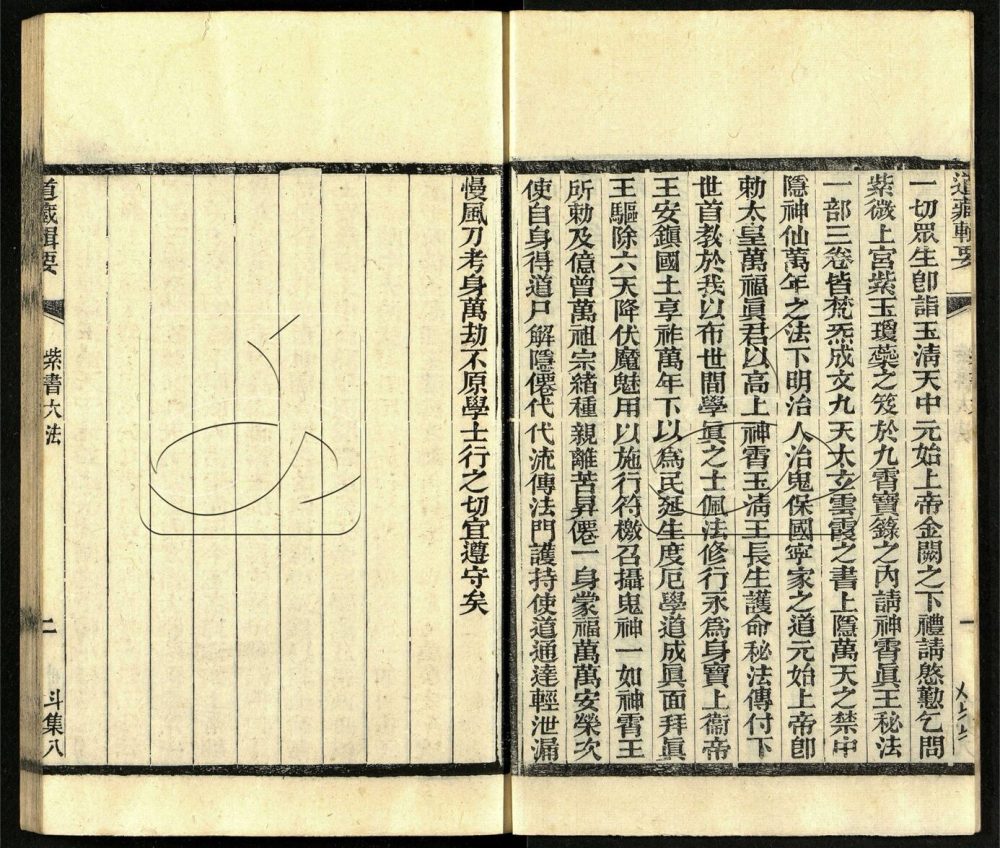 道藏輯要
一切眾生卽詣玉淸天中元始上帝金闕之下禮請慇懃乞問
紫微上宮紫玉瓊蘂之笈於九霄寶籙之內請神霄眞王秘法
一部三卷皆梵炁成文九天太玄雲霞之書上隱萬天之禁中
隱神仙萬年之法下明治人治鬼保國寧家之道元始上帝卽
勅太皇萬福眞君以高上神霄玉淸王長生護命秘法傳付下
世首教於我以布世間學眞之士佩法修行永爲身寶上衞帝
王安鎭國土享祚萬年下以爲民延生度厄學道成眞面拜眞
王驅除六天降伏魔魅用以施行符檄召攝鬼神一如神霄王
所勅及億曾萬祖宗緒種親離苦昇僊一身蒙福萬萬安榮次
使自身得道尸解隱僊代代流傳法門護持使道通達輕泄漏
慢風刀考身萬劫不原學士行之切宜遵守矣
道藏輯要
紫書大法
二
斗集八